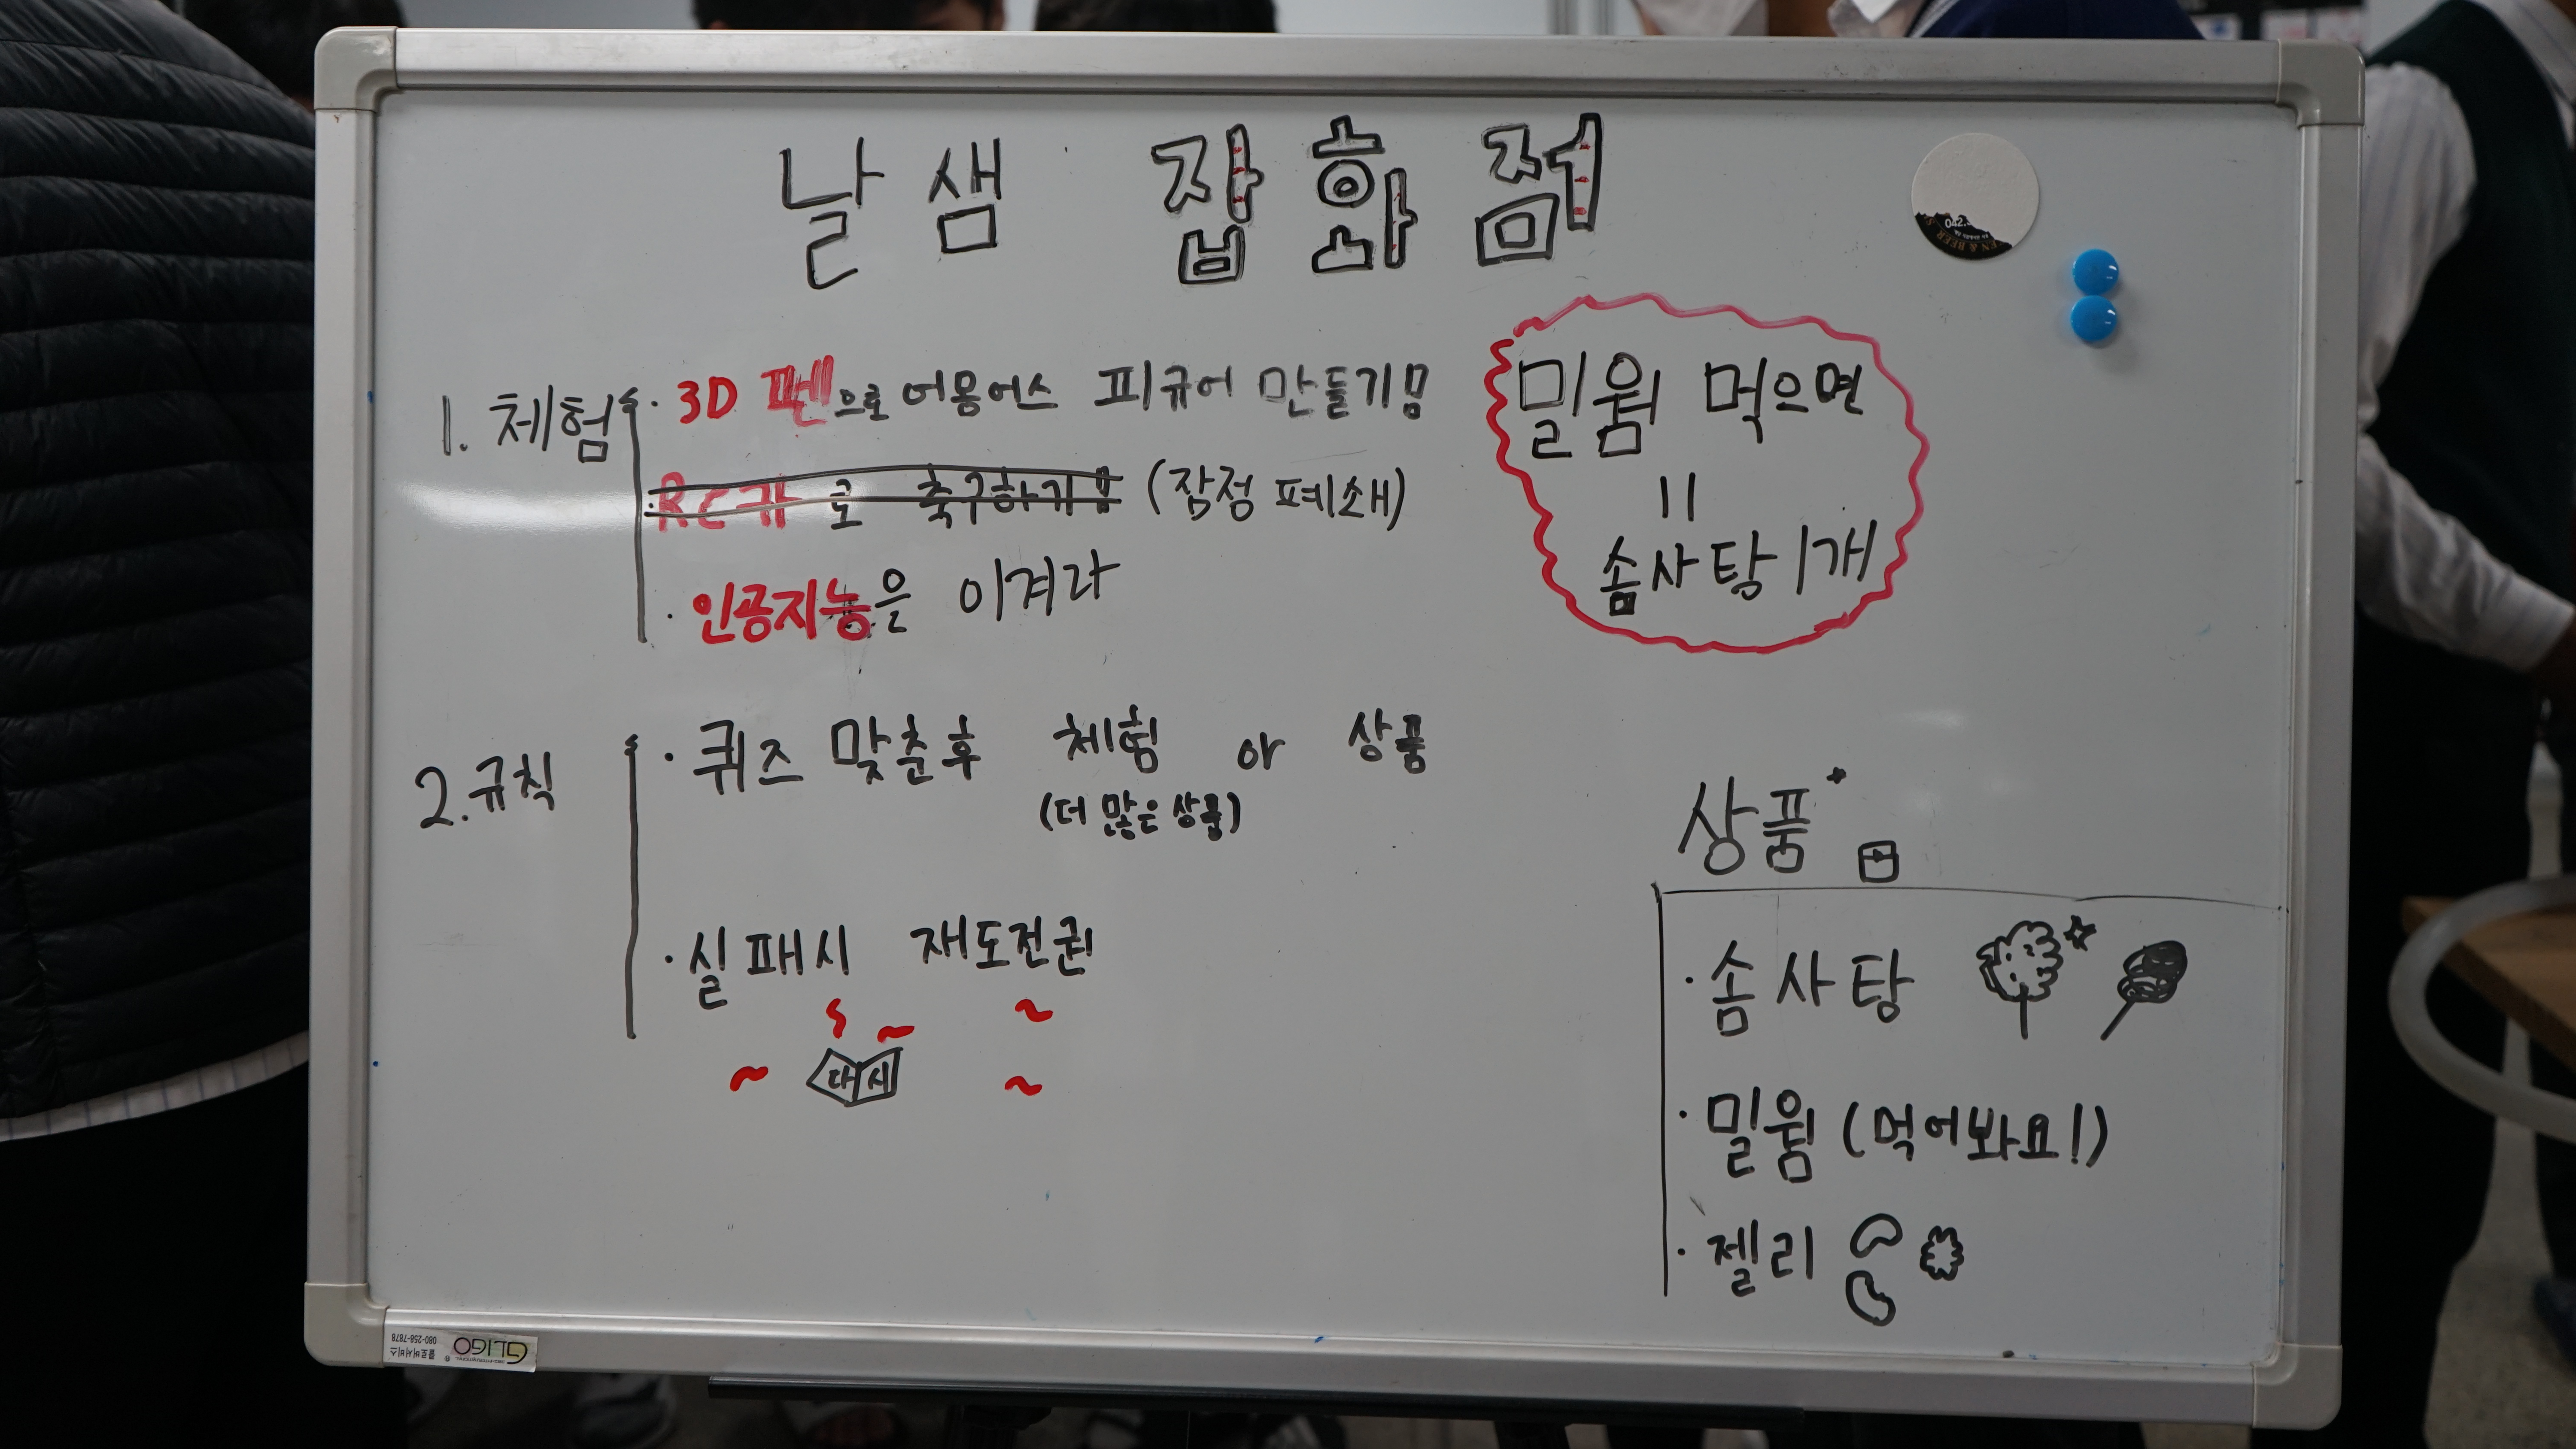 날샘 잡화점
1. 체험
· 3D 펜으로 어몽어스 피규어 만들기!!
· RC카로 축구하기!! (잠정 폐쇄)
· 인공지능을 이겨라
밀웜 먹으면
=
솜사탕 1개
2. 규칙
· 퀴즈 맞춘후 체험 or 상품
(더 많은 상품)
· 실패시 재도전권
다시
상품
· 솜사탕
· 밀웜 (먹어봐요!)
· 젤리
042.
EN & BEER
GLIGO
클로버서비스 080-258-7878